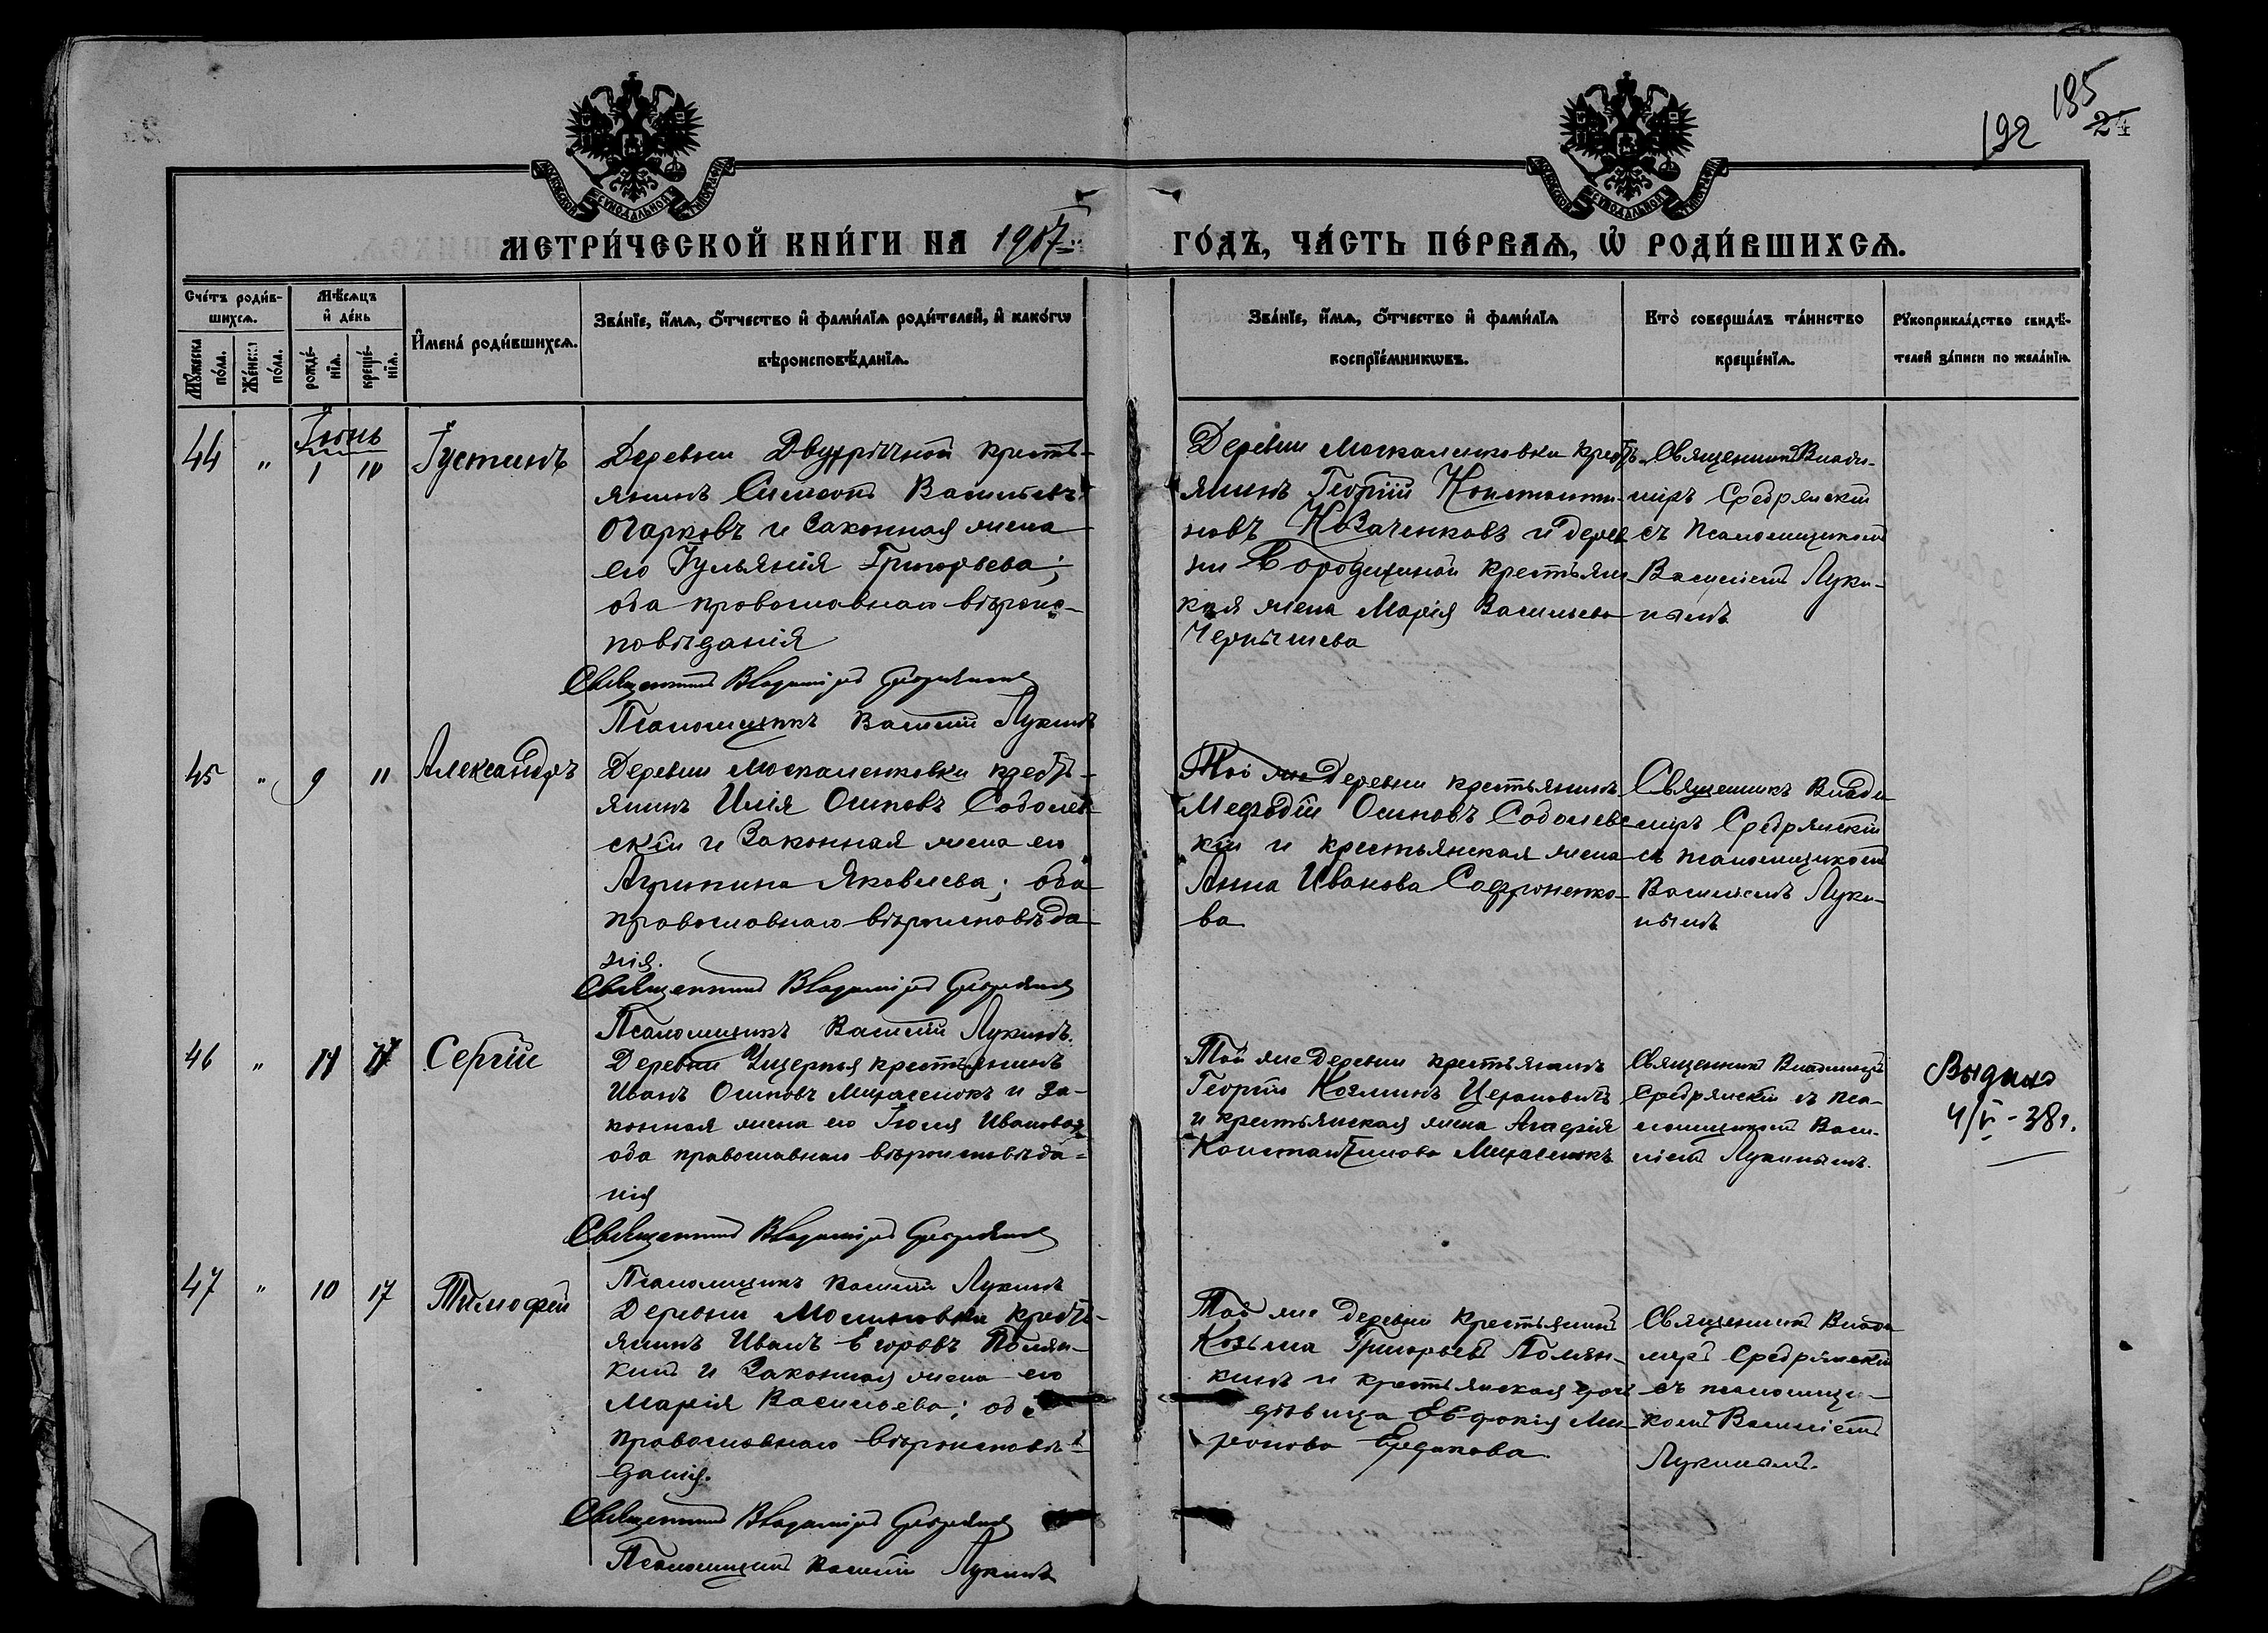 192
185
24
МОСКОВСКОЙ СѴНОДАЛЬНОЙ ТИПОГРАФІИ
МОСКОВСКОЙ СѴНОДАЛЬНОЙ ТИПОГРАФІИ
МЕТРИ́ЧЕСКОЙ КНИ́ГИ НА 1907
ГО́ДЪ, ЧА́СТЬ ПЕ́РВАѦ, Ѡ҆ РОДИ́ВШИХСѦ.
Сче́тъ роди́в-
шихсѧ.
Мꙋ́жеска по́ла.
Же́нска по́ла.
Мѣ́сѧцъ
и҆ де́нь
рожде́-
нїѧ.
креще́-
нїѧ.
И҆мена̀ роди́вшихсѧ.
Зва́нїе, и҆́мѧ, о҆́тчество и҆ фами́лїѧ роди́телей, и҆ како́гѡ
вѣроисповѣ́данїѧ.
Зва́нїе, и҆́мѧ, о҆́тчество и҆ фами́лїѧ
воспрїе́мникѡвъ.
Кто̀ соверша́лъ та́инство
креще́нїѧ.
Рꙋкоприкла́дство свидѣ́-
телей за́писи по жела́нїю.
44 " Іюнь 1 10 Іустинъ
Деревни Двухрѣчной кресть-
янинъ Симеонъ Васильевъ
Очарковъ и законная жена
его Іульянія Григорьева;
оба православнаго вѣроис-
повѣданія
Священникъ Владиміръ
Псаломщикъ Василій Лукинъ
Деревни Москаленковки кресть-
янинъ Георгій Константи-
новъ Козаченковъ и дерев
ни Бородихиной крестьян
кая жена Марія Васильева
Чернышева
Священникъ Влади-
миръ
съ псаломщикомъ
Василіемъ Луки-
нымъ
45 " 9 11 Александръ
Деревни Москаленковки кресть-
янинъ Илія Осиповъ Соболев
скій и законная жена его
Агрипина Яковлева; оба
православнаго вѣроисповѣда
нія.
Священникъ Владиміръ
Псаломщикъ Василій Лукинъ.
Той же деревни крестьянинъ
Мефодій Осиповъ Соболевс
кій и крестьянская жена
Анна Иванова Софроненко-
ва
Священникъ Влади
миръ
съ псаломщикомъ
Василіемъ Луки-
нымъ
46 " Сергій
Деревни крестьянинъ
Иванъ Осиповъ Михасенокъ и за-
конная жена его Іюлія Иванова;
оба православнаго вѣроисповѣда-
нія
Священникъ Владиміръ
Псаломщикъ Василій Лукинъ
Той же деревни крестьянинъ
Георгій
и крестьянская жена Агафія
Константинова Михасенокъ
Священникъ Владиміръ
съ пса-
ломщикомъ Васи-
ліемъ Лукинымъ.
Выдано
4/V - 38 г.
47 " 10 17 Тимофей
Деревни кресть-
янинъ Иванъ Егоровъ Полян-
кинъ и законная жена его
Марія Васильева; оба
православнаго вѣроисповѣ-
данія.
Священникъ Владиміръ
Псаломщикъ Василій Лукинъ
Той же деревни крестьянинъ
Козьма Григорьевъ Полян-
кинъ и крестьянская дочь
дѣвица Евфокія Ми-
ронова Ердакова
Священникъ Влади
миръ
съ псаломщи-
комъ Василіемъ
Лукинымъ.